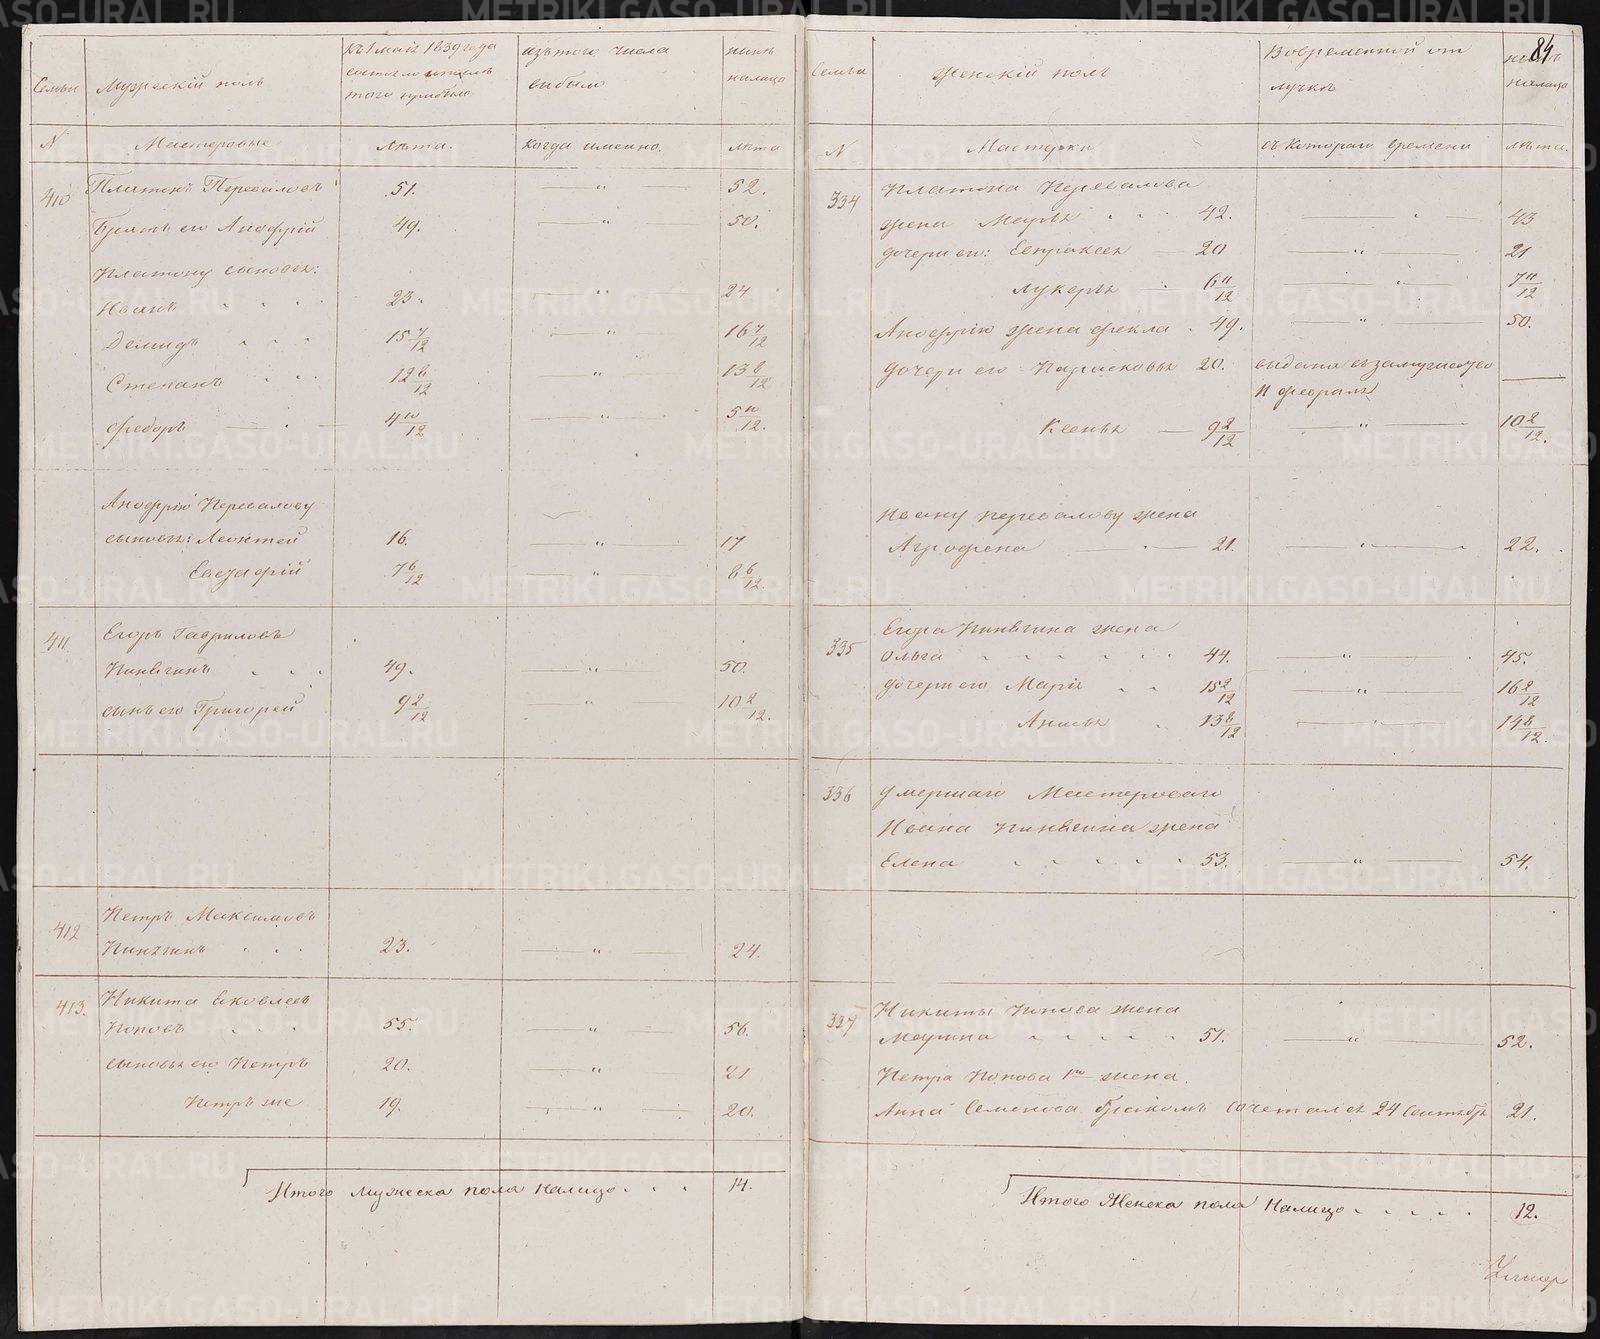 Семьи
Мужескій полъ
Къ 1 маія 1839 года
состояло и послѣ
того прибыло
изъ того числа
выбыло
нынѣ
налицо
N
Мастеровые
лѣта.
когда именно.
лѣта
410
Платонъ Переваловъ
51.
52.
Братъ его Анофрій
49.
50.
Платону сыновья:
Иванъ
23.
24
Демидъ
15 7/12
16 7/12
Степанъ
12 8/12
13 8/12
Федоръ
4 10/12
5 10/12.
Анофрію Перевалову
сыновья: Леонтей
16.
17
Евстафій
7 6/12
8 6/12.
411
Егоръ Гавриловъ
Пинягинъ
49.
50.
сынъ его Григорей
9 2/12
10 2/12.
412
Петръ Максимовъ
Пинягинъ
23.
24.
413.
Никита Яковлевъ
Поповъ
55.
56.
сыновья его Петръ
20.
21
Петръ же
19.
20.
Итого мужеска пола налицо
14.
84
Семьи
Женскій полъ
Во временной от
лучкѣ
нынѣ
налицо
N
Мастерки
съ котораго времени
лѣта.
334
Платона Перевалова
жена Марья
42.
43
дочери ея: Евпраксея
20
21
Лукерья
6 11/12
7 11/12
Анофрію жена Фекла
49.
50.
дочери его Парасковья
20.
выдана въ замужество
11 февраля
Ксенья
9 2/12
10 2/12.
Ивану Перевалову жена
Агрофена
21.
22.
335
Егора Пинягина жена
Ольга
44.
45.
дочери его Марія
15 2/12
16 2/12
Анисья
13 8/12
14 8/12.
336
Умершаго Мастероваго
Ивана Пинягина жена
Елена
53.
54.
337
Никиты Попова жена
Марина
51.
52.
Петра Попова 1го жена.
Анна Семенова бракомъ сочеталась 24 Сентября
21.
Итого Женска пола налицо
12.
METRIKI.GASO-URAL.RU